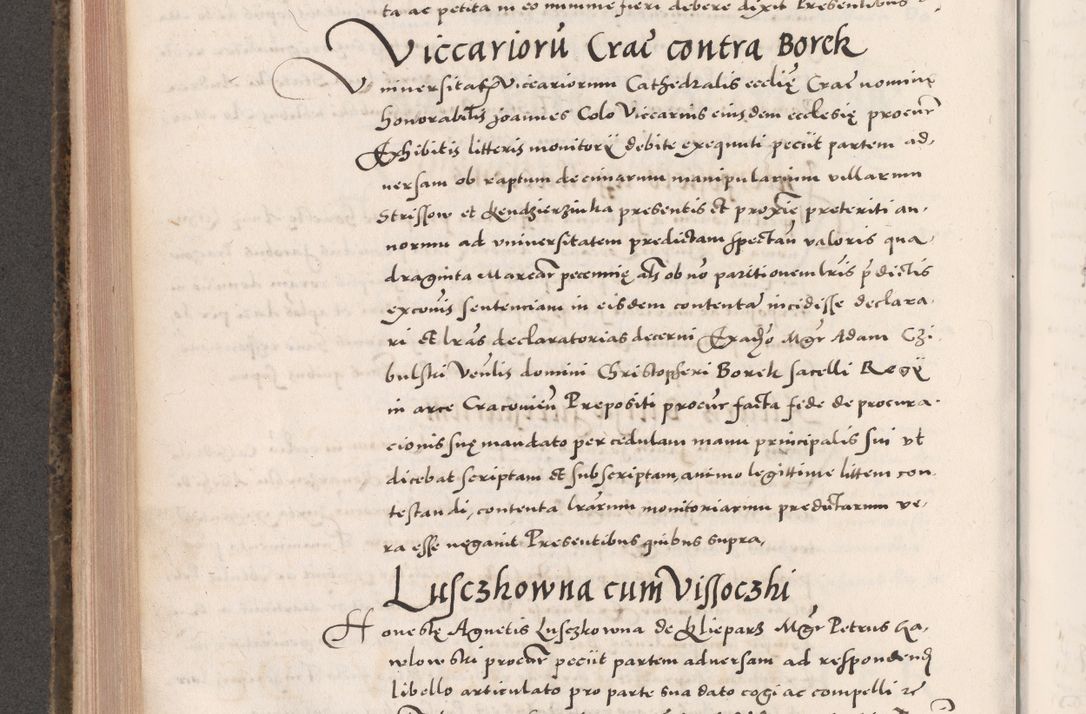 ta ac petita in eo minime fieri debere dixit Presentibus
Viccariorū Crac̄ contra Borek
Vniuersitatis Viccariorum Cathedralis ecclię Crac̄ nomine
honorabilis Joannes Colo Viccarius eiusdem ecclesię procur̄
Exhibitis litteris monitorÿ debite exequuti peciit partem ad-
uersam ob raptum decimarum manipularium villarum
Strissow et Kendzierzinka presentis et proxie preteriti an-
norum ad vniuersitatem predictam spectan̄ valoris qua-
draginta Marcar̄ pecunię ac ob nō paritionem lris p̄dictis
excōis sentenciam in eisdem contentā incidisse declara-
ri et lras declaratorias decerni Ex adºo Mgr̄ Adam Czi-
bulski Venlis domini Christopheri Borek sacelli Regÿ
in arce Cracouien̄ Prepositi procur̄ facta fede de procura-
cionis suę mandato per cedulam manu principalis sui vt
dicebat scriptam et subscriptam, animo legittime littem con-
testandi, contenta lrarum monitoriarum predictarum ve-
ra esse negauit Presentibus quibus supra,
Lusczkowna cum Vissoczki
Honestę Agnetis Lusczkowna de Klieparz Mgr̄ Petrus Ka-
wlowski procur̄ peciit partem aduersam ad respondend̄
libello articulato pro parte sua dato cogi ac compelli